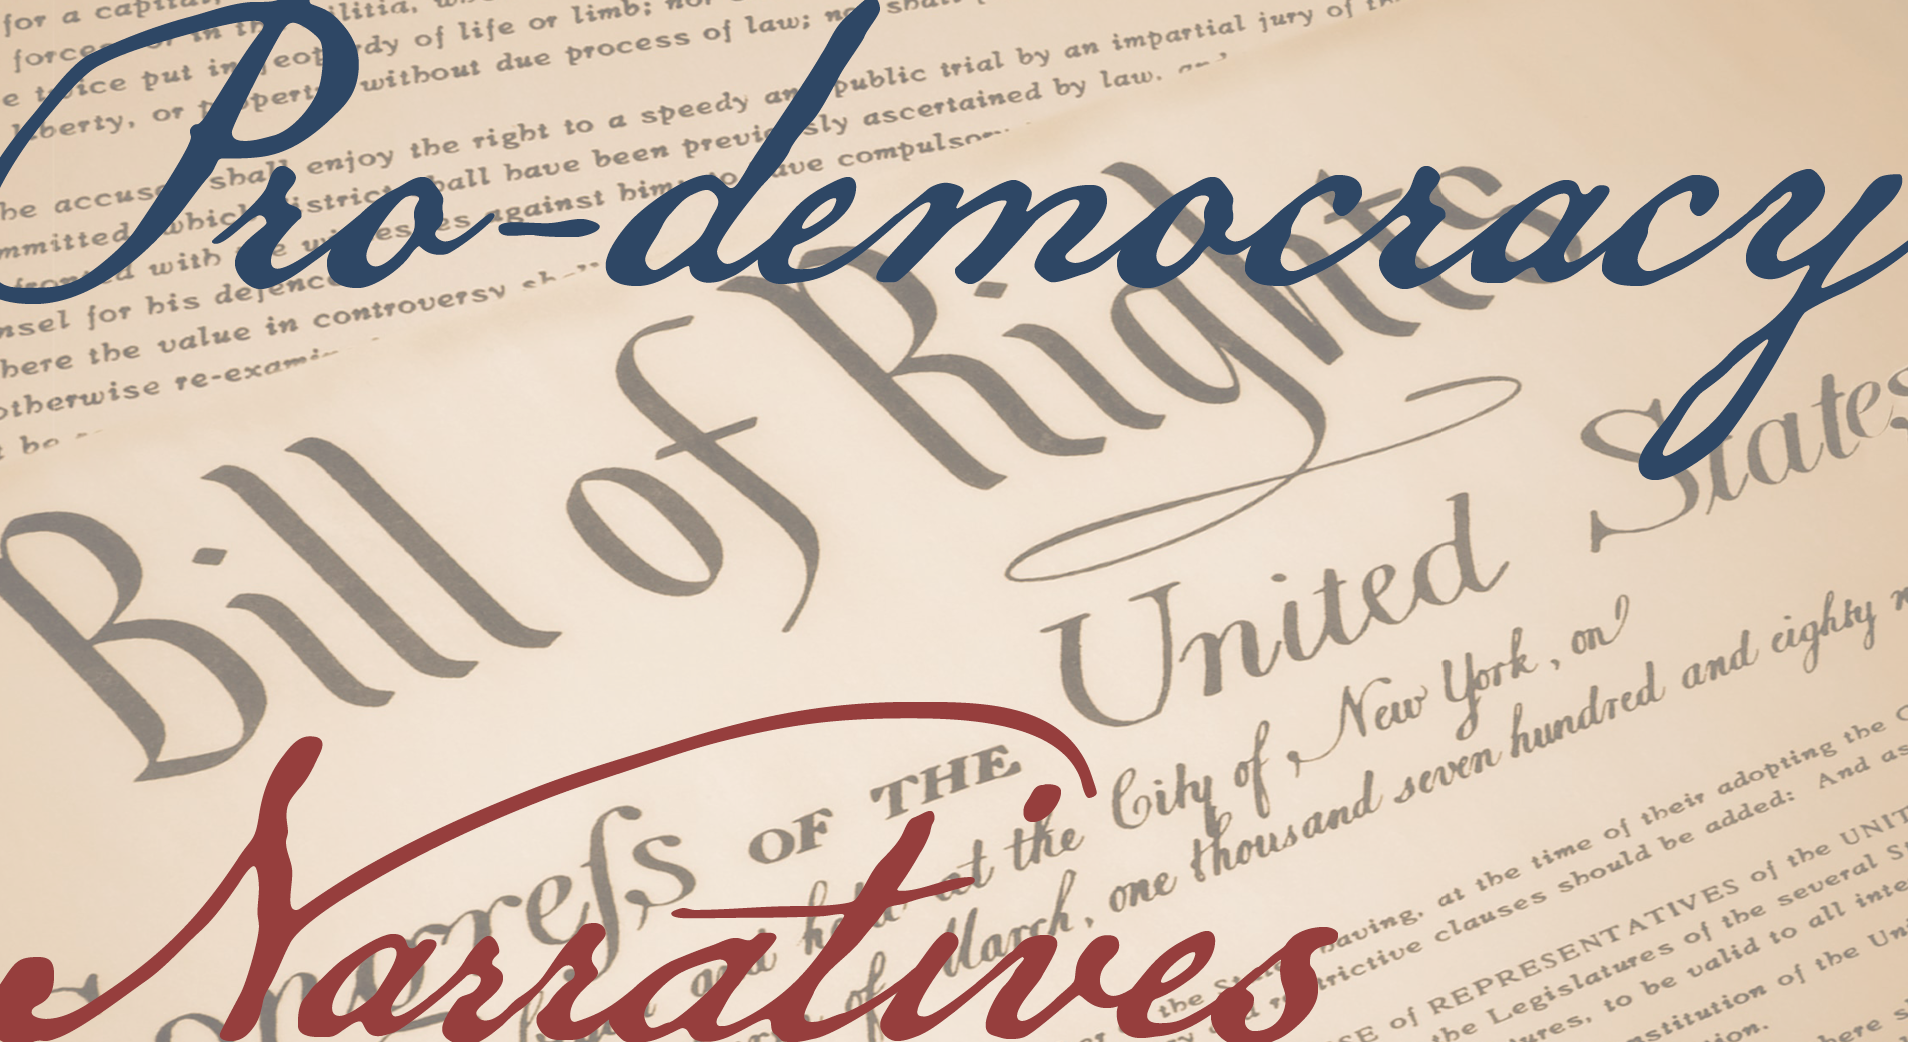 for a capital
forces or in the Militia,
e twice put in jeopardy of life or limb; nor
liberty, or property, without due process of law; nor shall
he accused shall enjoy the right to a speedy and public trial by an impartial jury of the
mmitted, which district shall have been previously ascertained by law, and
fronted with the witnesses against him; to have compulsory
nsel for his defence
here the value in controversy shall
otherwise re-exami
t be
Pro-democracy
Bill of Rights
Congreſs OF THE United States
begun and held at the City of New York, on
of March, one thousand seven hundred and eighty n
the States having, at the time of their adopting the C
ry and restrictive clauses should be added: And as
SE of REPRESENTATIVES of the UNIT
the Legislatures of the several St
ures, to be valid to all inte
nstitution of the Uni
tion.
here s
Narratives